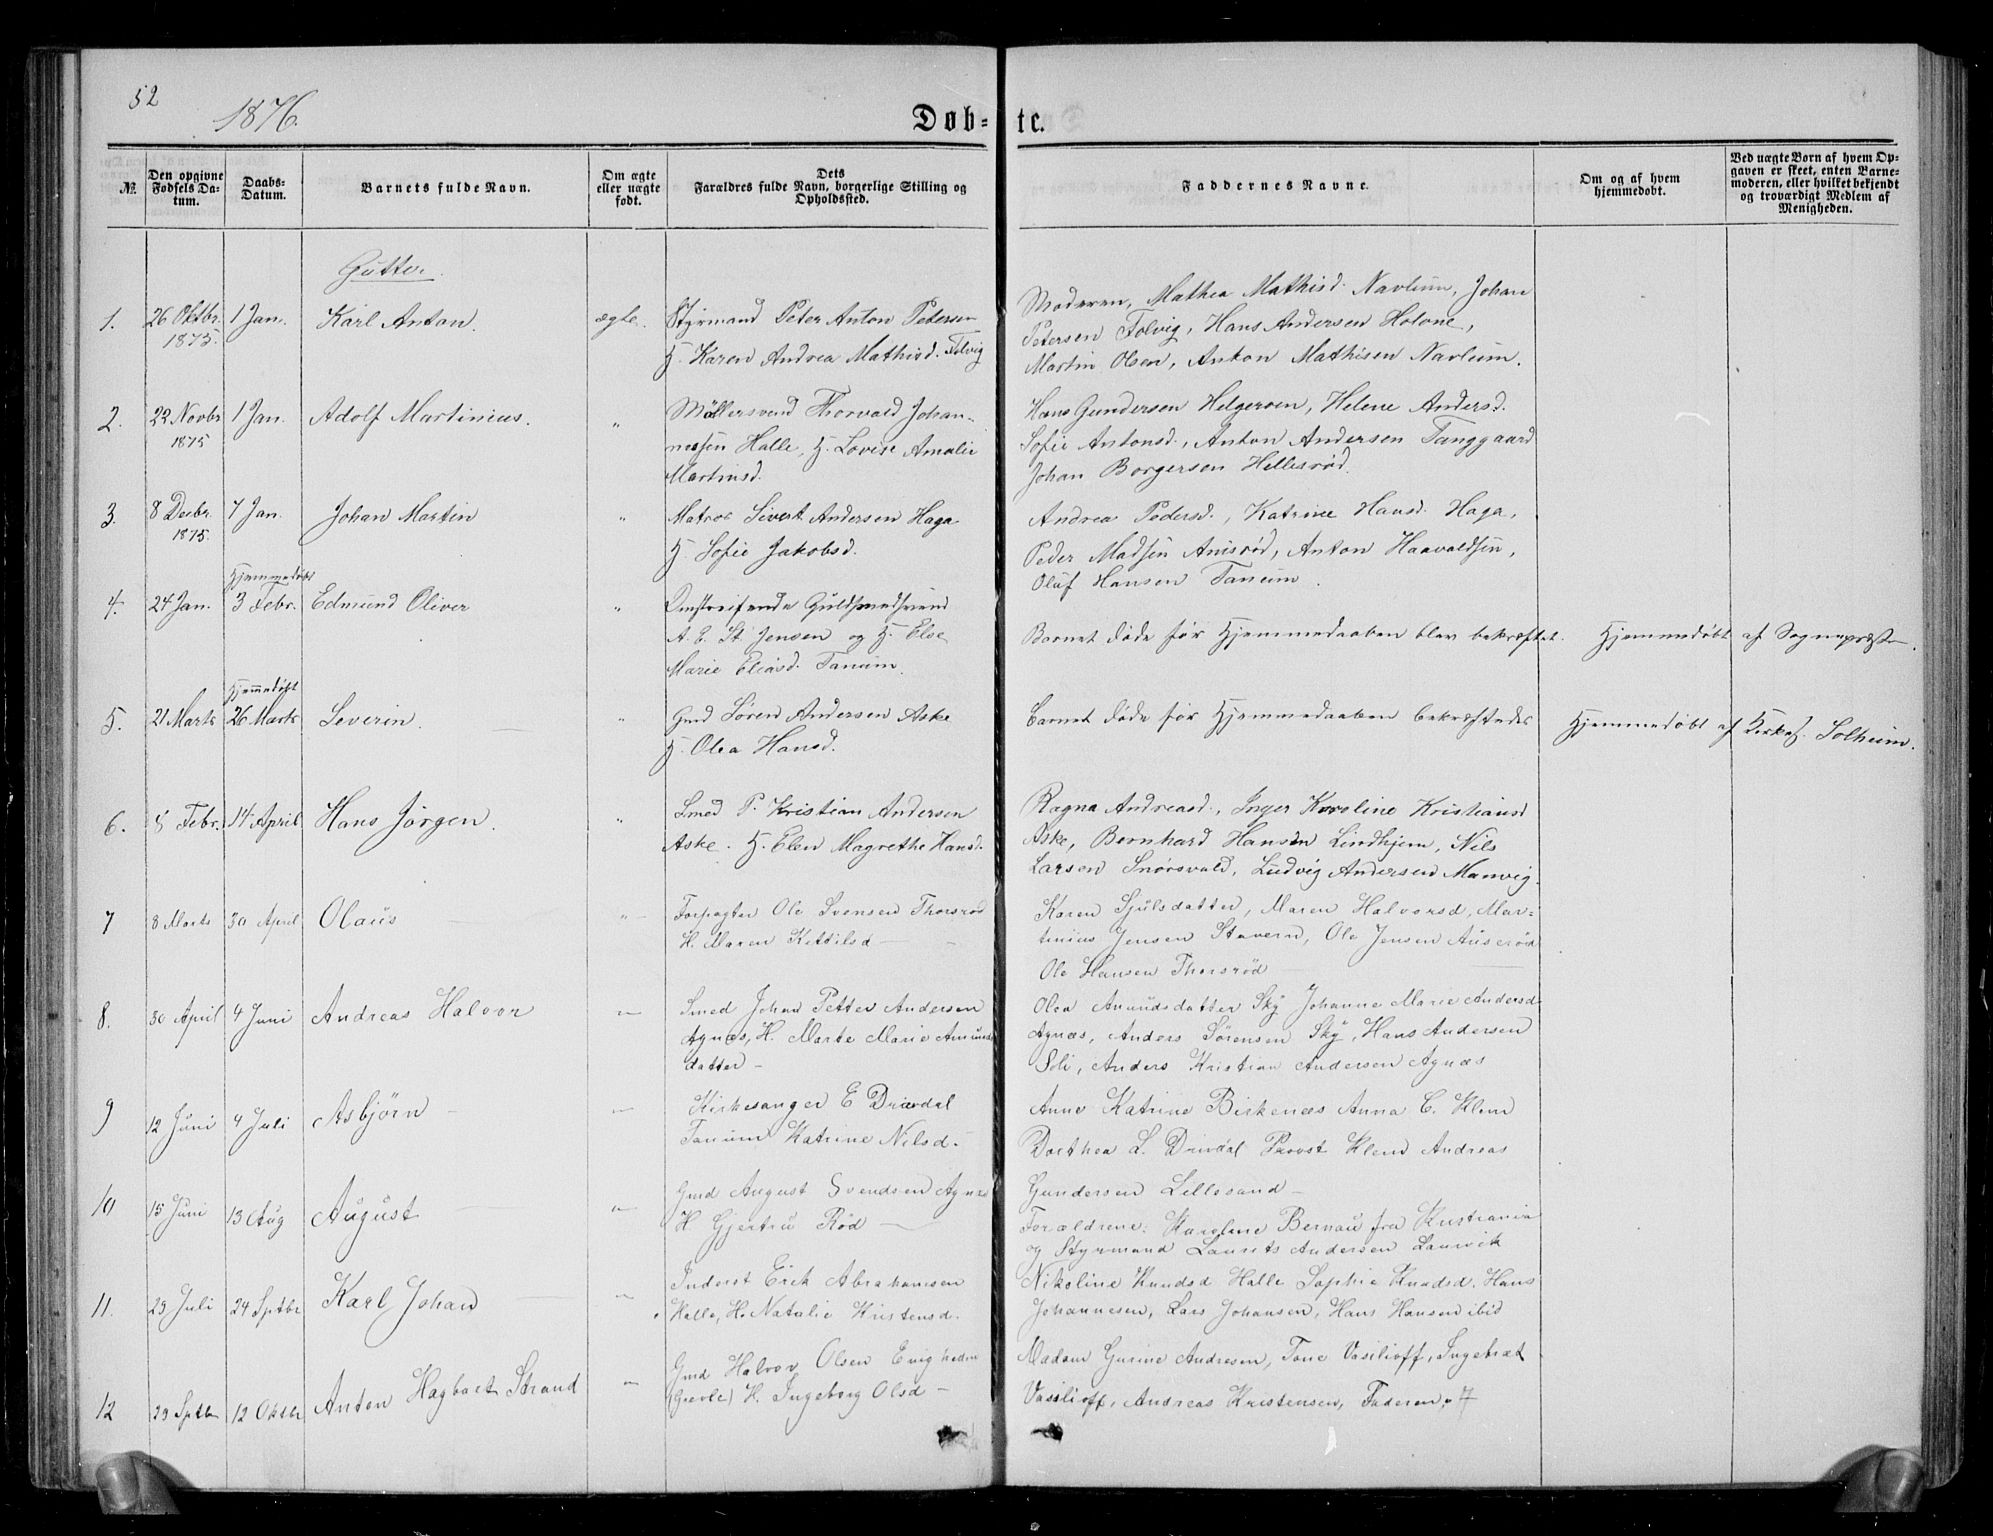 52
1876.
Døb-te.
№
Den opgivne Fødsels Datum.
Daabs-Datum.
Barnets fulde Navn.
Om ægte eller uægte født.
Dets Forældres fulde Navn, borgerlige Stilling og Opholdssted.
Faddernes Navne.
Om og af hvem hjemmedøbt.
Ved uægte Børn af hvem Opgaven er skeet, enten Barnemoderen, eller hvilket bekjendt og troværdigt Medlem af Menigheden.
Gutter.
1. 26 Oktbr. 1875. 1 Jan. Karl Anton. ægte.
Styrmand Peter Anton Petersen
H. Karen Andrea Mathisd. Folvig
Moderen, Mathea Mathisd. Navlum, Johan
Petersen Folvig, Hans Andersen Holone,
Martin Olsen, Anton Mathisen Navlum.
2. 22 Novbr 1875 1 Jan. Adolf Martinius. "
Møllersvend Thorvald Johan-
nessen Halle, H. Lovise Amalie
Martinsd.
Hans Gundersen Helgeroen, Helene Andersd.
Sofie Antonsd., Anton Andersen Tanggaard
Johan Borgersen Hellesrød.
3. 8 Decbr. 1875. 7 Jan. Johan Martin "
Matros Sivert Andersen Haga
H. Sofie Jakobsd.
Andrea Pedersd., Katrine Hansd. Haga,
Peder Madsen Anisrød, Anton Haavaldsen,
Oluf Hansen Tanum.
4. 24 Jan. Hjemmedøbt 3 Febr. Edmund Oliver "
Omstreifende Guldsmedsvend
A. E. St. Jensen og H. Else
Marie Eliasd. Tanum.
Barnet døde før Hjemmedaaben blev bekræftet.
Hjemmedøbt af Sognepræsten.
5. 21 Marts Hjemmedøbt 26 Marts Severin. "
Gmd Søren Andersen Aske
H. Olea Hansd.
Barnet døde før Hjemmedaaben bekræftedes
Hjemmedøbt af Kirkes. Solheim.
6. 8 Febr. 14 April Hans Jørgen. "
Smed P. Kristian Andersen
Aske. H. Elen Magrethe Hansd.
Ragna Andreasd., Inger Karoline Kristiansd
Aske, Bernhard Hansen Lindhjem, Nils
Larsen Snørsvald, Ludvig Andersen Manvig.
7 8 Marts 30 April Olaus "
Forpagter Ole Svensen Thorsrød
H. Maren Kittilsd
Karen Sjulsdatter, Maren Halvorsd, Mar-
tinius Jensen Stavern, Ole Jensen Auserød
Ole Hansen Thorsrød
8. 30 April 4 Juni Andreas Halvor "
Smed Johan Petter Andersen
Agnæs, H. Marte Marie Amunds
datter
Olea Amundsdatter Sky Johanne Marie Andersd
Agnæs, Anders Sørensen Sky, Hans Andersen
Soli, Anders Kristian Andersen Agnæs
9 12 Juni 4 Juli Asbjørn "
Kirkesanger E Drivdal
Tanum Katrine Nilsd.
Anne Katrine Birkenæs Anna C. Klem
Dorthea L. Drivdal Provst Klem Andreas
Gundersen Lillesand
10 15 Juni 13 Aug August "
Gmd August Svendsen Agnæs
H Gjertru Rød
Forældrene: Karoline Bernau fra Kristiania
og Styrmand Laurits Andersen Laurvik
11. 29 Juli 24 Sptbr Karl Johan "
Inderst Erik Abrahamsen
Halle, H. Natalie Kristensd.
Nikoline Knudsd Halle Sophie Knudsd. Hans
Johannesen, Lars Johansen, Hans Hansen ibid
12 29 Sptbr 12 Oktbr Anton Hagbart Strand "
Gmd Halvor Olsen Evigheden
(Grevle) H. Ingeborg Olsd
Madam Gurine Andresen, Tone Vasilioff, Ingebret
Vasilioff, Andreas Kristensen, Faderen.